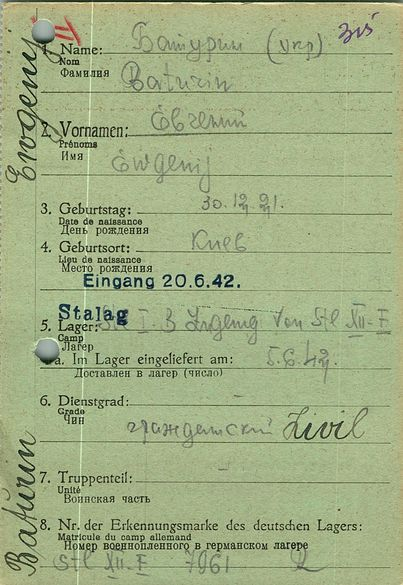 Ewgenij
Baturin
II
зиб
1. Name: Батурин (укр)
Nom
Фамилия
Baturin
2. Vornamen: Евгений
Prénoms
Имя
Ewgenij
3. Geburtstag: 30.12.21.
Date de naissance
День рождения
4. Geburtsort: Киев
Lieu de naissance
Место рождения
Eingang 20.6.42.
Stalag
5. Lager: Stl I B Zugang von Stl XII-F
Camp
Лагер
a. Im Lager eingeliefert am: 5.6.42.
Доставлен в лагер (число)
6. Dienstgrad:
Grade
Чин
гражданский Zivil
7. Truppenteil:
Unité
Воинская часть
8. Nr. der Erkennungsmarke des deutschen Lagers:
Matricule du camp allemand
Номер военнопленного в германском лагере
Stl XII-F 7961